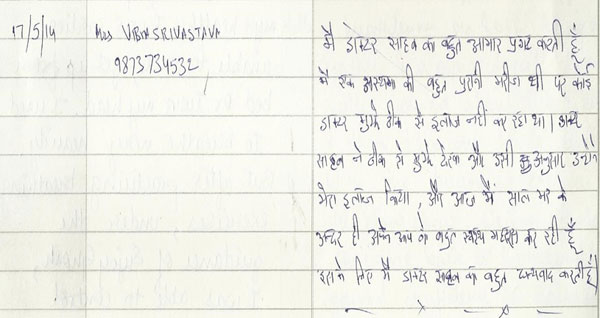 17/5/14
Mrs VIBHA SRIVASTAVA
9873734532
मै डॉक्टर साहब का बहुत आभार प्रगट करती हूँ
मै एक अस्थमा की बहुत पुरानी मरीज थी पर कोई
डाक्टर मुझे ठीक से इलाज नहीं कर रहा था। डाक्टर
साहब ने ठीक से मुझे देखा और उसी अनुसार उन्होंने
मेरा इलाज किया, और आज मैं साल भर के
अन्दर ही अपने आप को बहुत स्वस्थ महसूस कर रही हूँ
इसके लिए मै डाक्टर साहब का बहुत धन्यवाद करती हूँ।